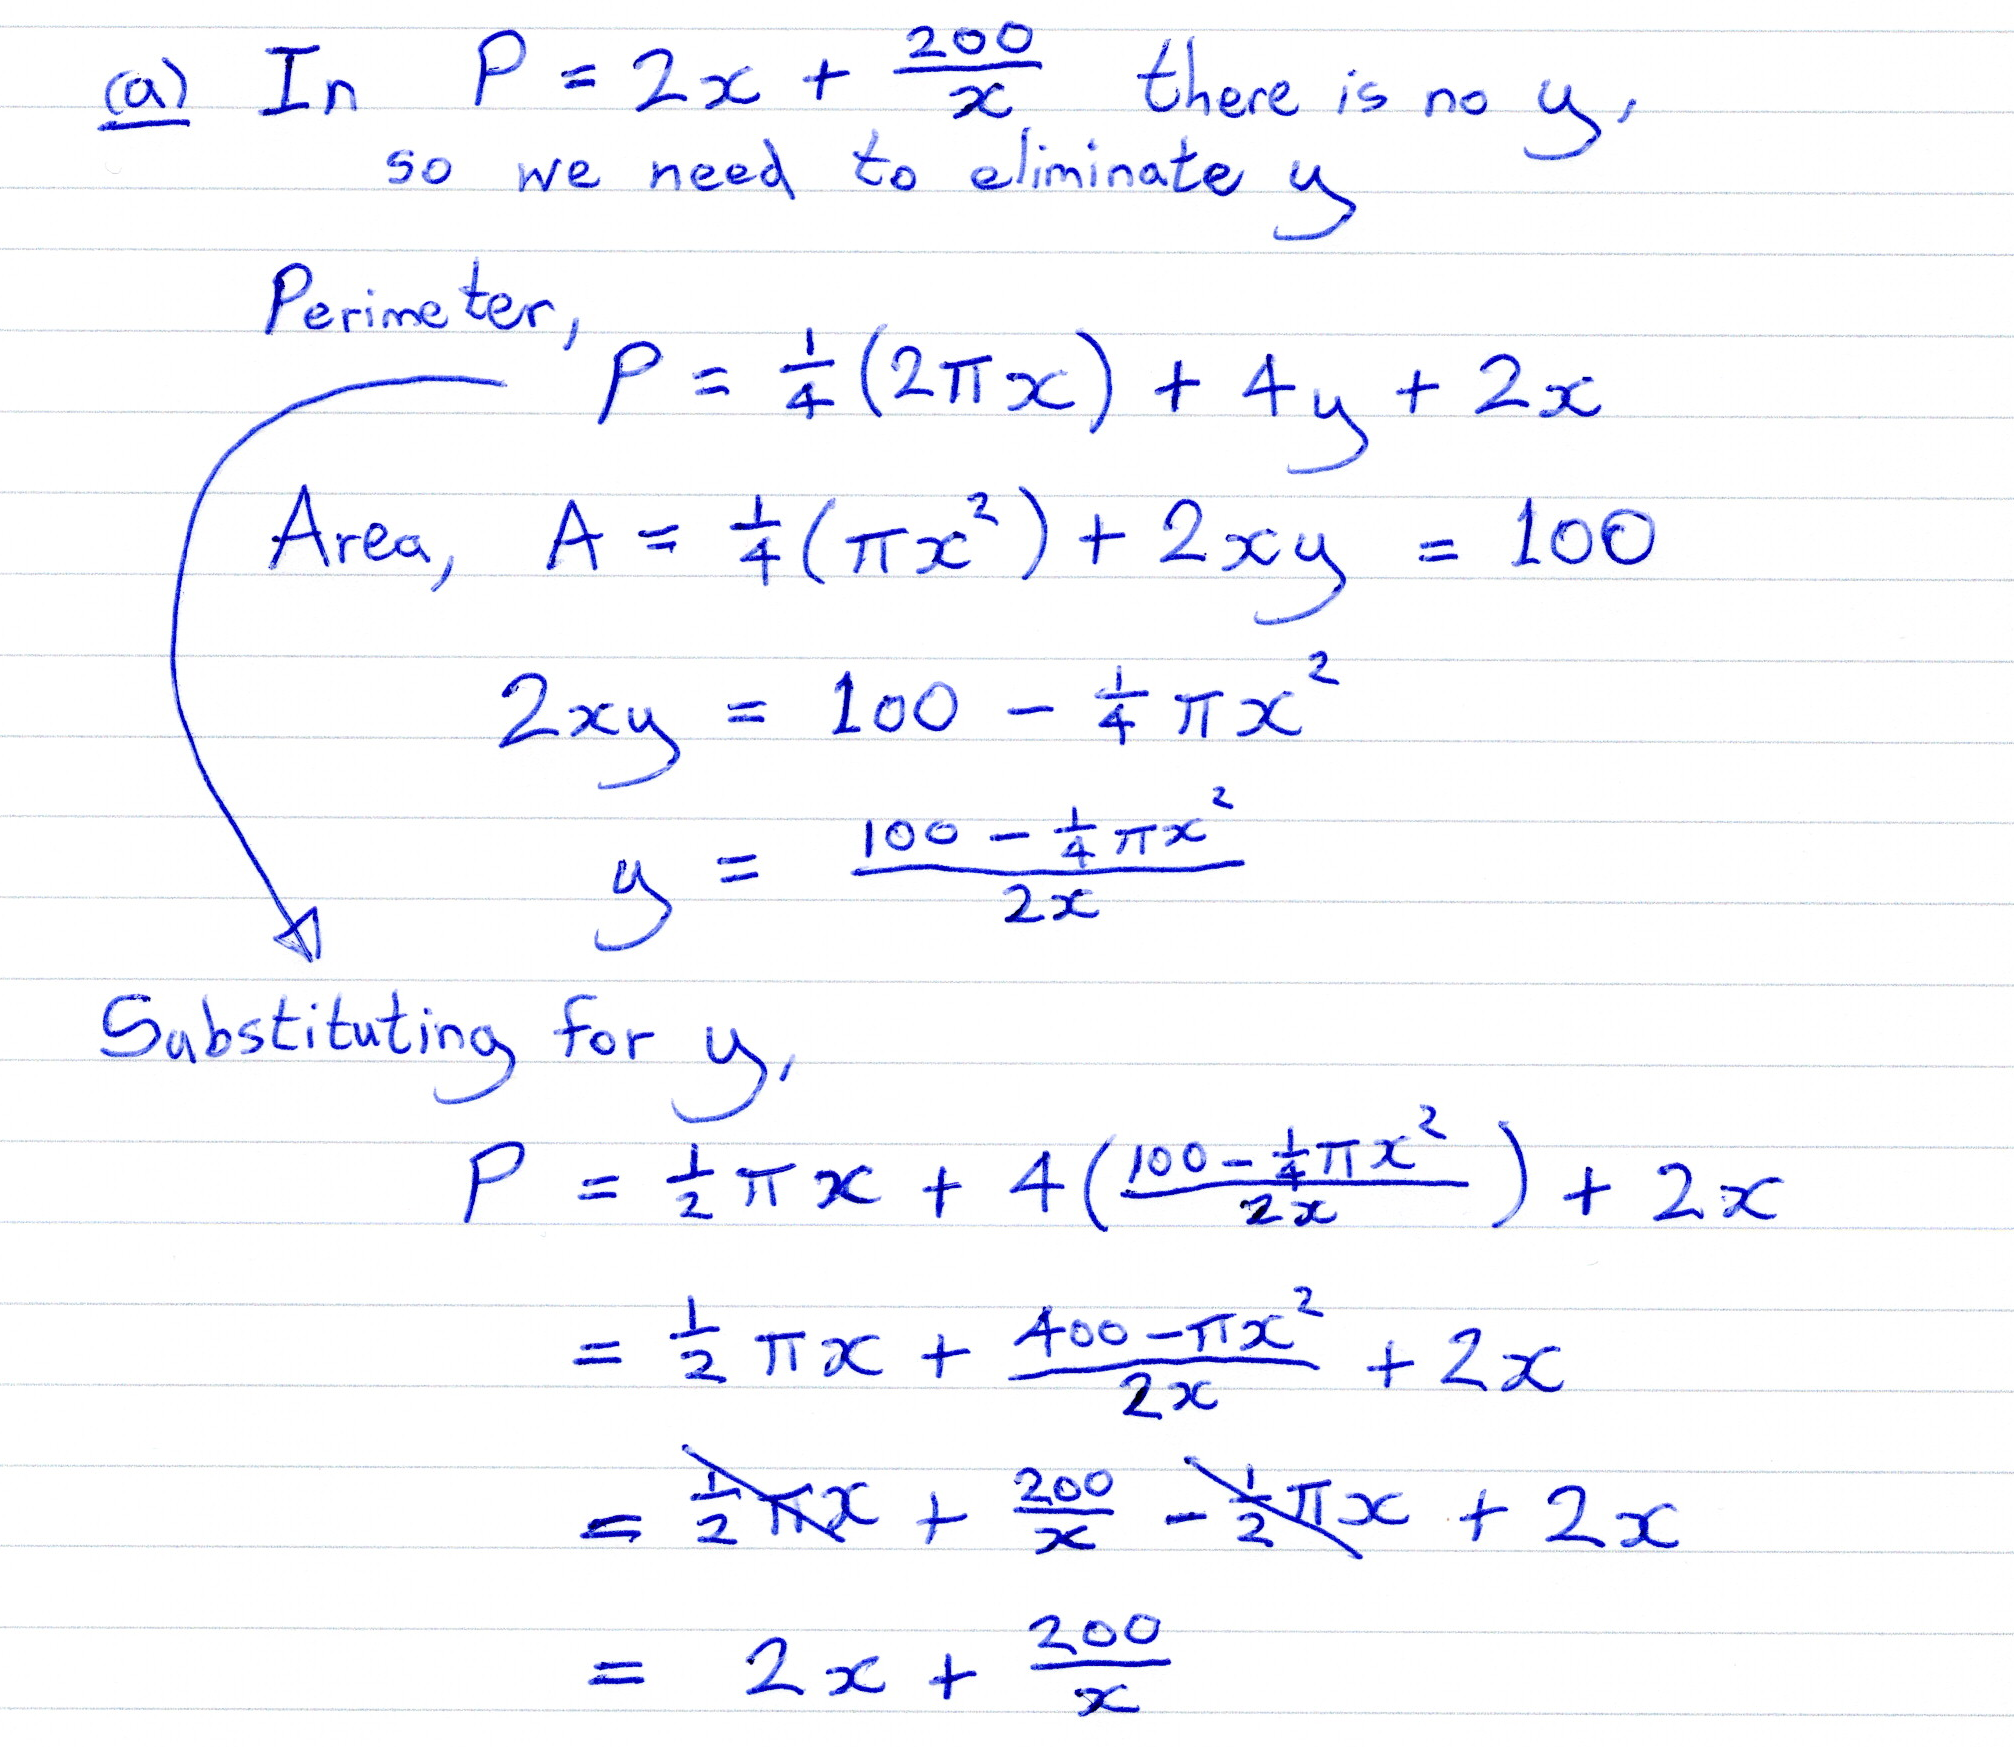 (a) In P = 2x + 200/x there is no y,
so we need to eliminate y
Perimeter,
P = 1/4 (2πx) + 4y + 2x
Area, A = 1/4 (πx²) + 2xy = 100
2xy = 100 - 1/4 πx²
y = (100 - 1/4 πx²)/2x
Substituting for y,
P = 1/2 πx + 4((100 - 1/4 πx²)/2x) + 2x
= 1/2 πx + (400 - πx²)/2x + 2x
= 1/2 πx + 200/x - 1/2 πx + 2x
= 2x + 200/x